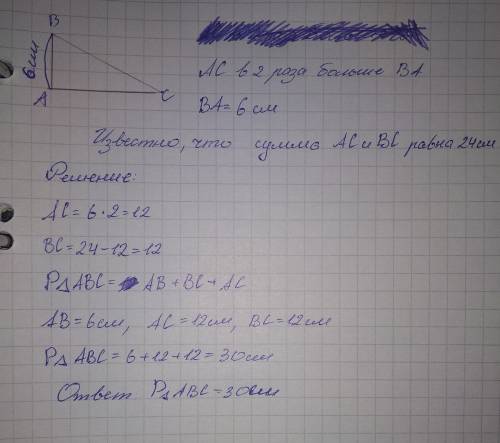 B
6см
A
C
AC в 2 роза больше BA
BA = 6 см
Известно, что сумма AC и BC равна 24 см
Решение:
AC = 6 · 2 = 12
BC = 24 - 12 = 12
P△ ABC = AB + BC + AC
AB = 6см, AC = 12см, BC = 12см
P△ ABC = 6 + 12 + 12 = 30см
Ответ P△ ABC = 30см